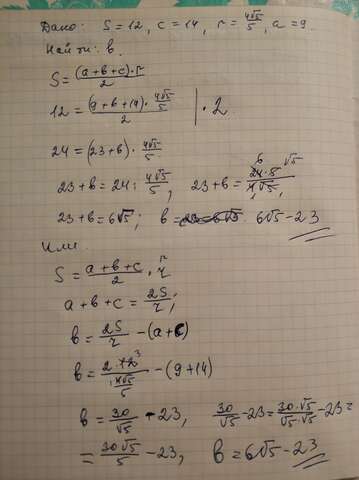 Дано: S=12, c=14, r=4√5/5, a=9.
Найти: b.
S=(a+b+c)·r/2
12=(9+b+14)·4√5/5 /2 | ·2
24=(23+b)·4√5/5
23+b=24:4√5/5, 23+b=24·5/4√5, 6 √5
23+b=6√5; b= 6√5-23
Или
S=a+b+c/2 · r
a+b+c=2S/r;
b=2S/r-(a+c)
b=2·12/4√5/5-(9+14) 3
b=30/√5-23, 30/√5-23=30·√5/√5·√5-23=
=30√5/5-23, b=6√5-23